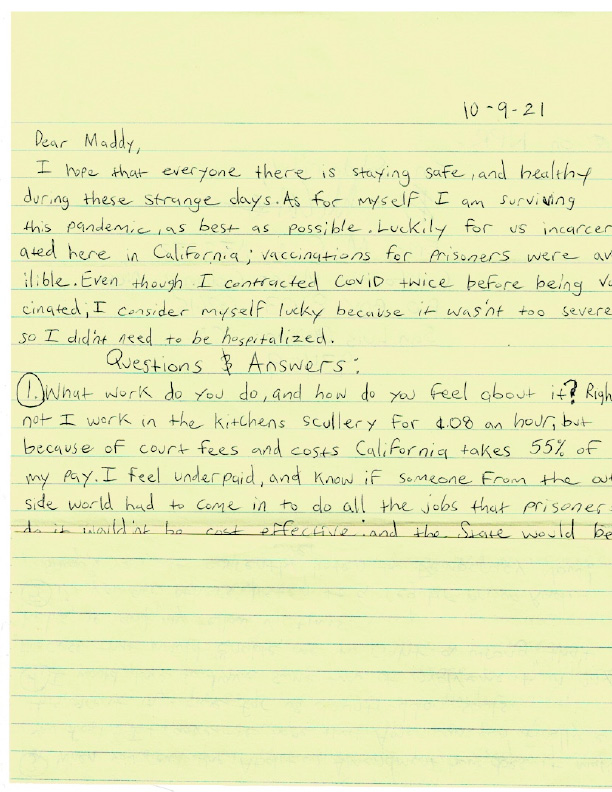 10-9-21
Dear Maddy,
I hope that everyone there is staying safe, and healthy
during these strange days. As for myself I am surviving
this pandemic, as best as possible. Luckily for us incarcer
ated here in California; vaccinations for prisoners were av
ilible. Even though I contracted COVID twice before being va
cinated, I consider myself lucky because it was'nt too severe
so I did'nt need to be hospitalized.
Questions & Answers:
1. What work do you do, and how do you feel about it? Righ
not I work in the kitchens scullery for ¢.08 an hour; but
because of court fees and costs California takes 55% of
my pay. I feel underpaid, and know if someone from the out
side world had to come in to do all the jobs that prisoner
do it would'nt be cost effective; and the State would be